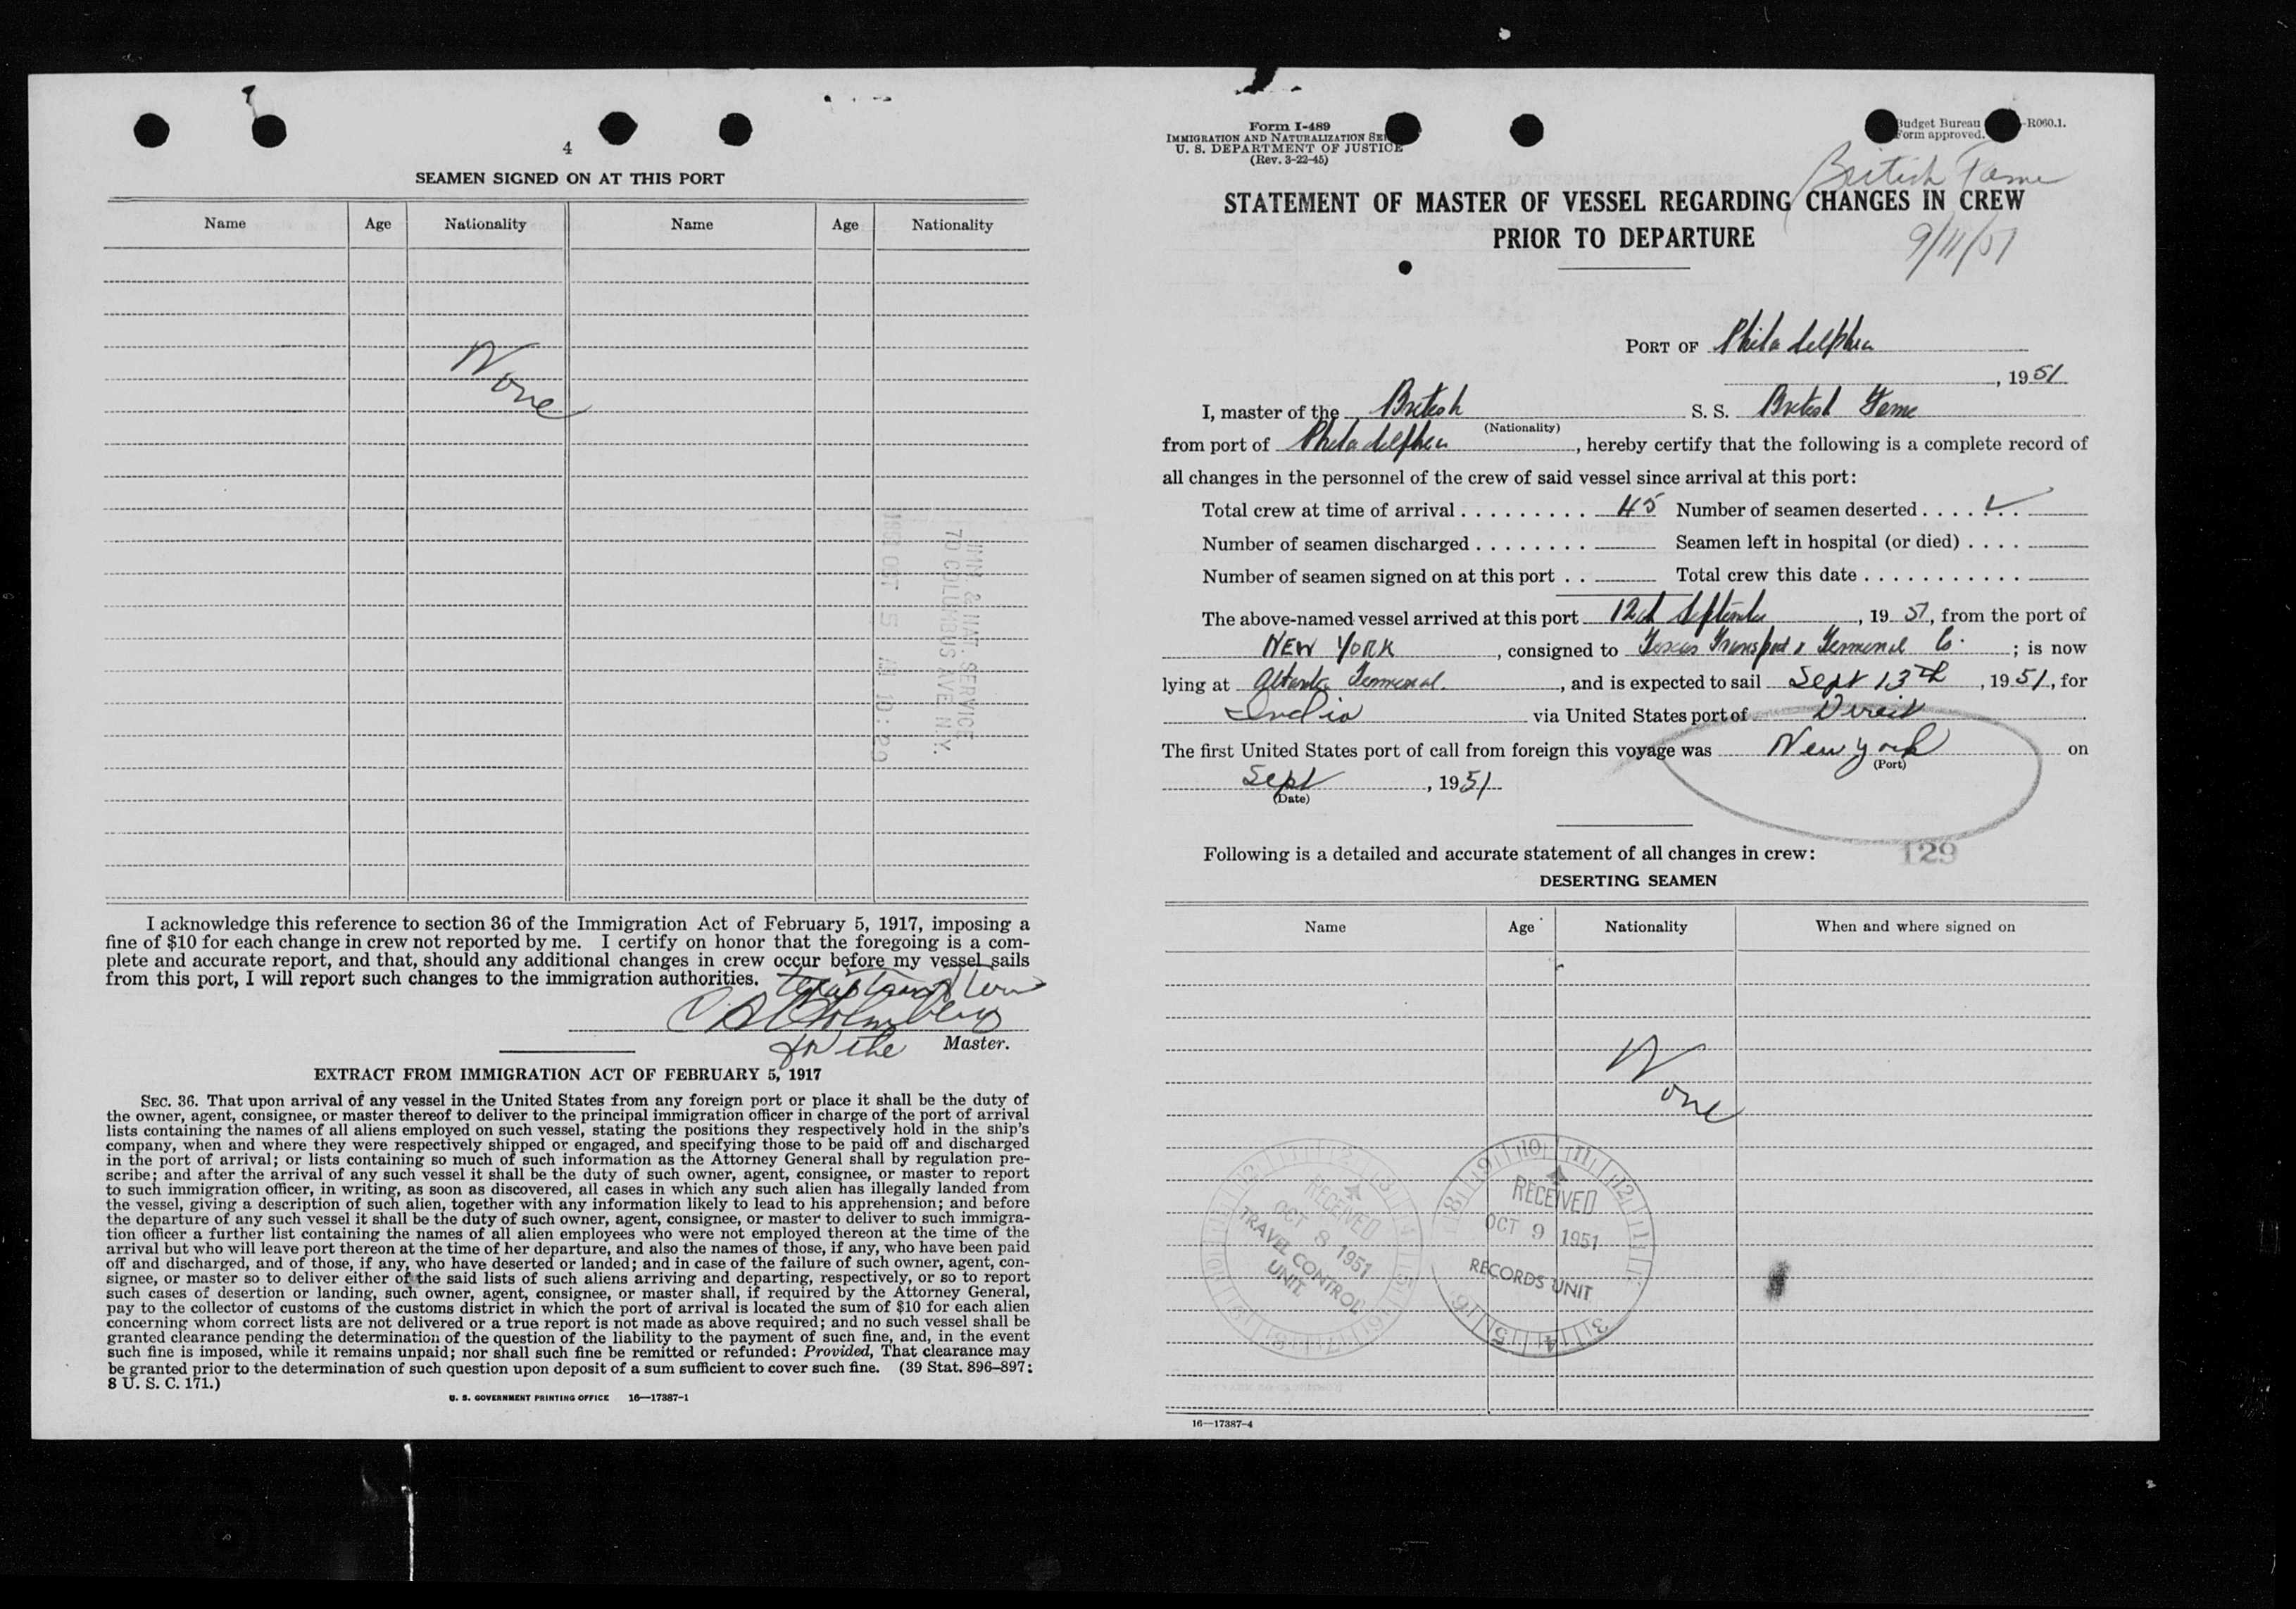 4
SEAMEN SIGNED ON AT THIS PORT
Name Age Nationality Name Age Nationality
None
IMM. & NAT. SERVICE
70 COLUMBUS AVE. N.Y.
1951 OCT 5 AM 10:29
I acknowledge this reference to section 36 of the Immigration Act of February 5, 1917, imposing a
fine of $10 for each change in crew not reported by me. I certify on honor that the foregoing is a com-
plete and accurate report, and that, should any additional changes in crew occur before my vessel sails
from this port, I will report such changes to the immigration authorities.
for the Master.
EXTRACT FROM IMMIGRATION ACT OF FEBRUARY 5, 1917
SEC. 36. That upon arrival of any vessel in the United States from any foreign port or place it shall be the duty of
the owner, agent, consignee, or master thereof to deliver to the principal immigration officer in charge of the port of arrival
lists containing the names of all aliens employed on such vessel, stating the positions they respectively hold in the ship's
company, when and where they were respectively shipped or engaged, and specifying those to be paid off and discharged
in the port of arrival; or lists containing so much of such information as the Attorney General shall by regulation pre-
scribe; and after the arrival of any such vessel it shall be the duty of such owner, agent, consignee, or master to report
to such immigration officer, in writing, as soon as discovered, all cases in which any such alien has illegally landed from
the vessel, giving a description of such alien, together with any information likely to lead to his apprehension; and before
the departure of any such vessel it shall be the duty of such owner, agent, consignee, or master to deliver to such immigra-
tion officer a further list containing the names of all alien employees who were not employed thereon at the time of the
arrival but who will leave port thereon at the time of her departure, and also the names of those, if any, who have been paid
off and discharged, and of those, if any, who have deserted or landed; and in case of the failure of such owner, agent, con-
signee, or master so to deliver either of the said lists of such aliens arriving and departing, respectively, or so to report
such cases of desertion or landing, such owner, agent, consignee, or master shall, if required by the Attorney General,
pay to the collector of customs of the customs district in which the port of arrival is located the sum of $10 for each alien
concerning whom correct lists are not delivered or a true report is not made as above required; and no such vessel shall be
granted clearance pending the determination of the question of the liability to the payment of such fine, and, in the event
such fine is imposed, while it remains unpaid; nor shall such fine be remitted or refunded: Provided, That clearance may
be granted prior to the determination of such question upon deposit of a sum sufficient to cover such fine. (39 Stat. 896–897;
8 U. S. C. 171.)
U. S. GOVERNMENT PRINTING OFFICE 16—17387-1
Form I-489
IMMIGRATION AND NATURALIZATION SE
U. S. DEPARTMENT OF JUSTICE
(Rev. 3-22-45)
Budget Bureau -R060.1.
Form approved.
British Fame
STATEMENT OF MASTER OF VESSEL REGARDING CHANGES IN CREW
PRIOR TO DEPARTURE
9/11/51
PORT OF Philadelphia
, 1951
I, master of the British S. S. British Fame
(Nationality)
from port of Philadelphia, hereby certify that the following is a complete record of
all changes in the personnel of the crew of said vessel since arrival at this port:
Total crew at time of arrival . . . . . . . . . 45 Number of seamen deserted . . . . . . ✓
Number of seamen discharged . . . . . . . . Seamen left in hospital (or died) . . . .
Number of seamen signed on at this port . . Total crew this date . . . . . . . . . . . .
The above-named vessel arrived at this port 12th September, 1951, from the port of
NEW YORK, consigned to Texas Transport & Terminal Co.; is now
lying at Atlantic Terminal., and is expected to sail Sept 13th, 1951, for
India via United States port of Direct
The first United States port of call from foreign this voyage was New York on
(Port)
Sept, 1951
(Date)
Following is a detailed and accurate statement of all changes in crew:
129
DESERTING SEAMEN
Name Age Nationality When and where signed on
None
RECEIVED
OCT 8 1951
TRAVEL CONTROL
UNIT
RECEIVED
OCT 9 1951
RECORDS UNIT
16—17387-4